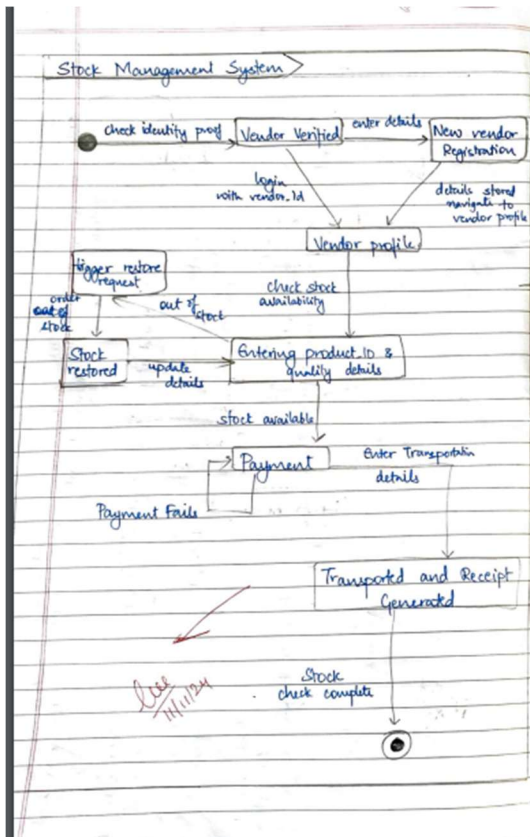 Stock Management System
check identity proof
Vendor Verified
enter details
New vendor
Registration
login
with vendor_Id
details stored
navigate to
vendor profile
Vendor profile
trigger restore
request
check stock
availability
order
stock
out of
stock
Stock
restored
update
details
Entering product_ID &
quality details
stock available
Payment
Enter Transportatin
details
Payment Fails
Transported and Receipt
Generated
Stock
check complete
11/11/24